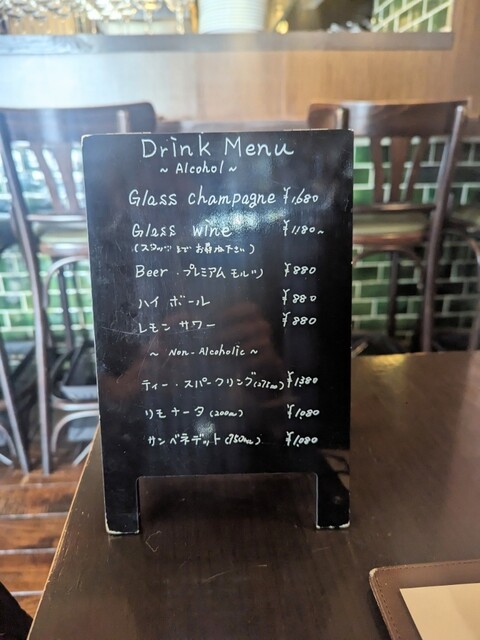 Drink Menu
~ Alcohol ~
Glass champagne ¥1,680
Glass wine ¥1,180~
(スタッフまでお尋ね下さい)
Beer・プレミアムモルツ ¥880
ハイボール ¥880
レモンサワー ¥880
~ Non-Alcoholic ~
ティー・スパークリング(275ml) ¥1380
リモナータ(200ml) ¥1,080
サンベネデット(750ml) ¥1,080